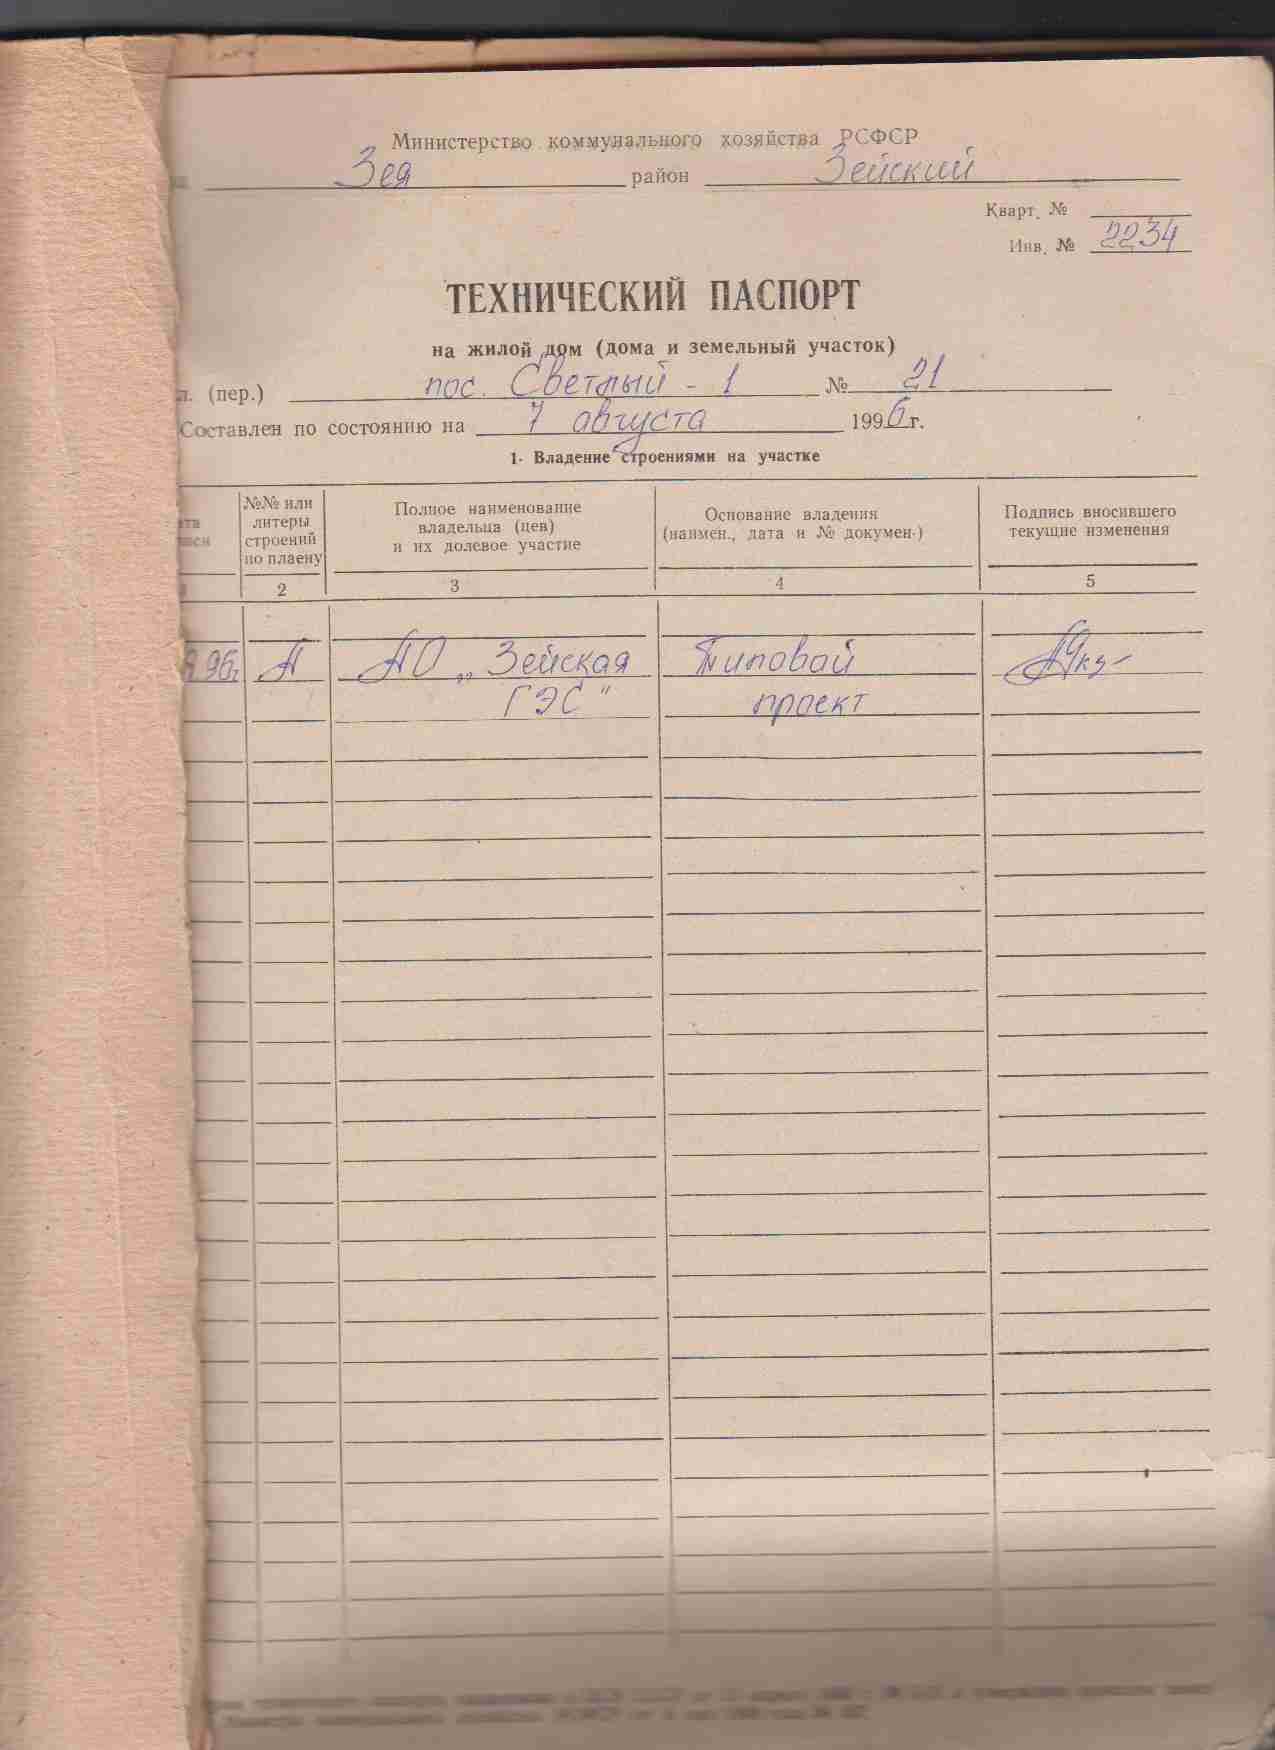 Министерство коммунального хозяйства РСФСР
Зея район Зейский
Кварт. №
Инв. № 2234
ТЕХНИЧЕСКИЙ ПАСПОРТ
на жилой дом (дома и земельный участок)
л. (пер.) пос. Светлый - 1 № 21
Составлен по состоянию на 7 августа 1996 г.
1. Владение строениями на участке
№№ или литеры строений по плаену
Полное наименование владельца (цев) и их долевое участие
Основание владения (наимен., дата и № докумен.)
Подпись вносившего текущие изменения
2 3 4 5
8 96г А АО „Зейская Типовой
ГЭС" проект